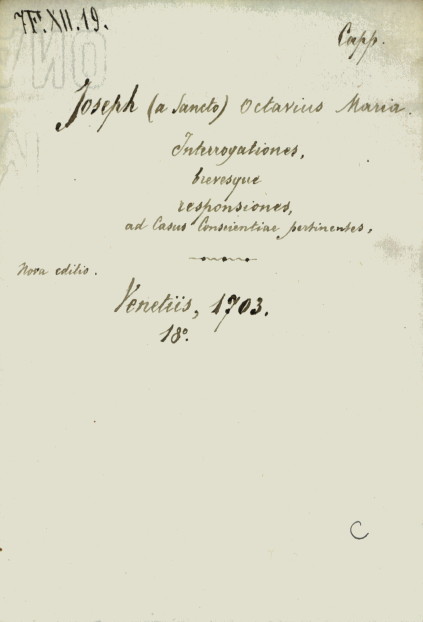 7F.XII.19.
Capp.
Joseph (a Sancto) Octavius Maria.
Interrogationes,
brevesque
responsiones,
ad Casus Conscientiae pertinentes,
Nova editio.
Venetiis, 1703.
18º.
C